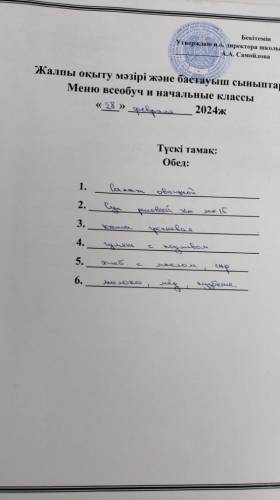 Бекітемін
Утверждаю и.о. директора школы
А.А. Самойлова
Жалпы оқыту мәзірі және бастауыш сыныптар
Меню всеобуч и начальные классы
« 28 » февраля 2024ж
Түскі тамақ:
Обед:
1. Салат овощной
2. Суп рисовый на
3. каша гречневая
4. гуляш с подливом
5. хлеб с маслом, сыр
6. молоко, мёд,